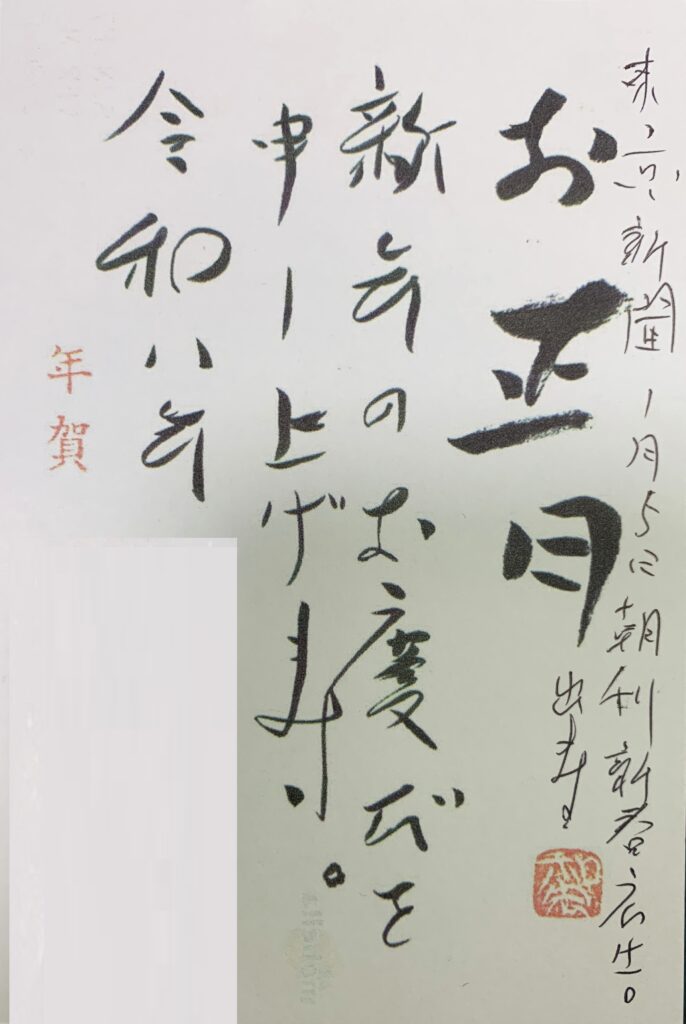 東京新聞1月5日朝刊新春広告。
出ます
お正月
新年のお慶びを
申し上げます。
令和八年
年賀